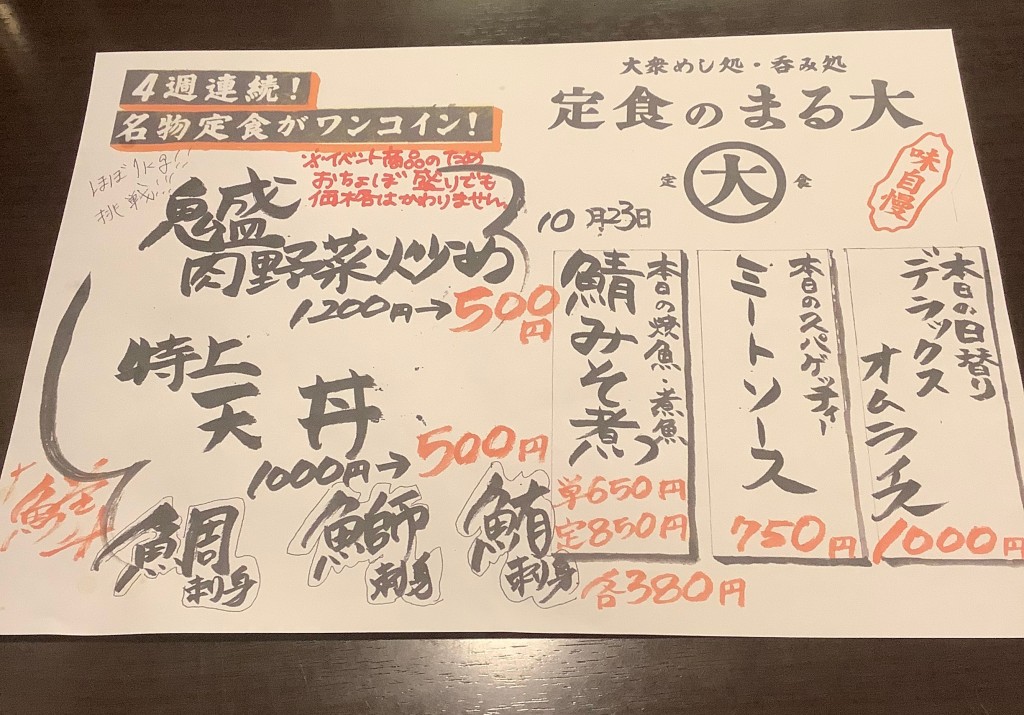 大衆めし処・呑み処
定食のまる大
定 大 食
味自慢
4週連続！
名物定食がワンコイン！
※イベント商品のため
おちょぼ盛りでも
価格はかわりません。
ほぼ1kg!!
挑戦!!!
鬼盛
肉野菜炒め
1200円→500円
特上
天丼
1000円→500円
10月23日
本日の日替り
デラックス
オムライス
1000円
本日のスパゲッティー
ミートソース
750円
本日の焼魚・煮魚
鯖みそ煮
単650円
定850円
鮪刺身
鰤刺身
鯛刺身
各380円